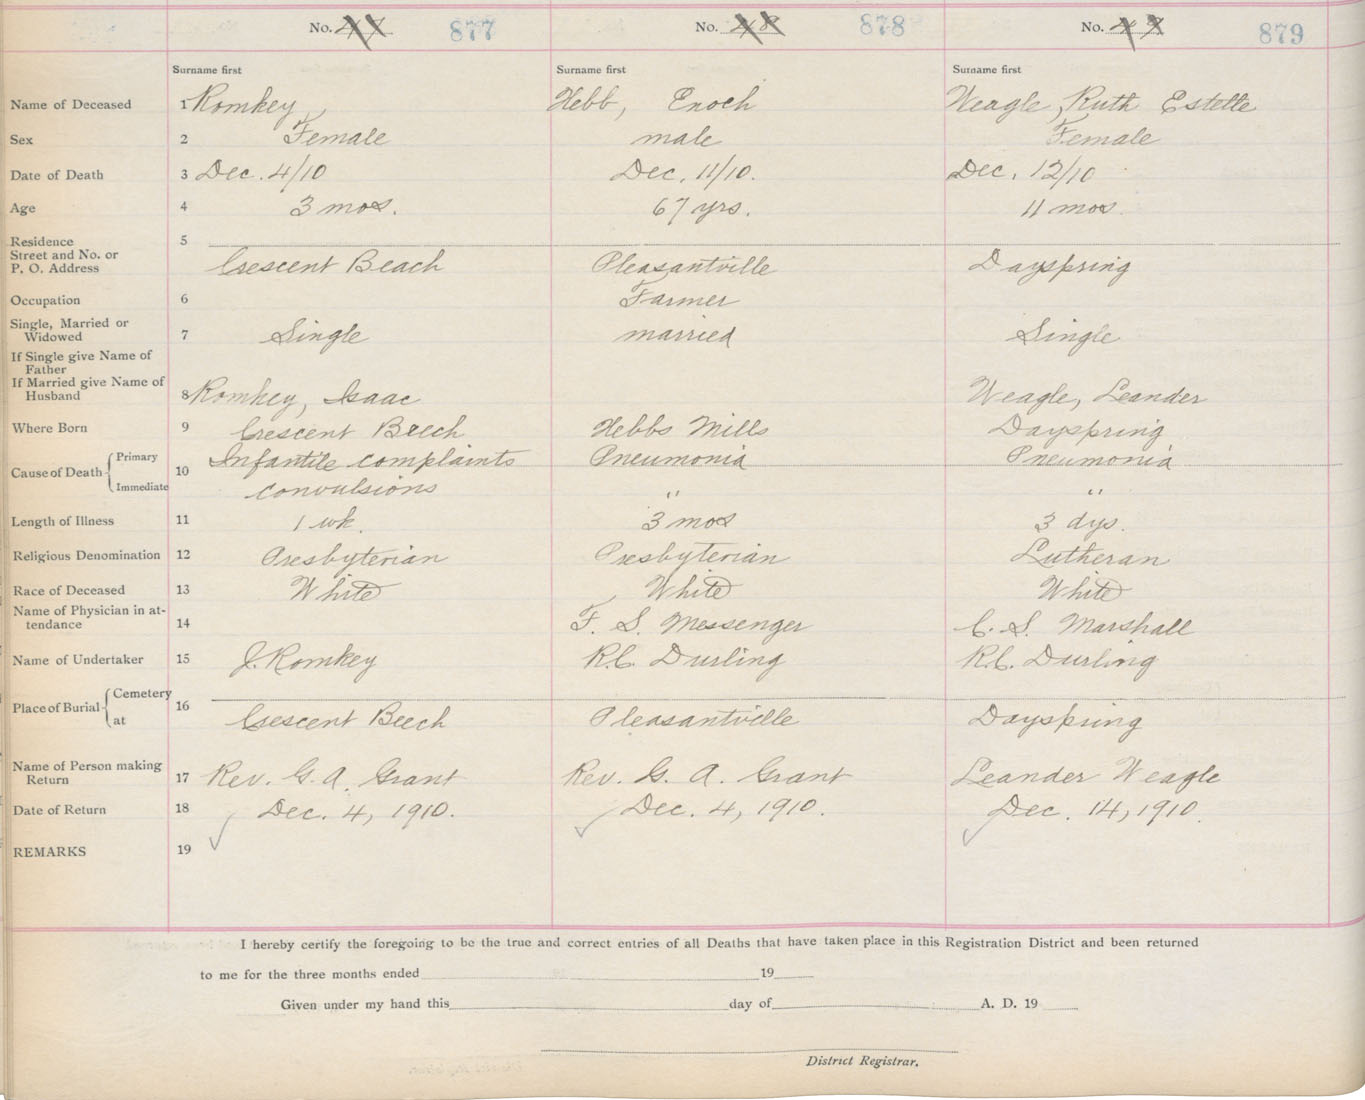 No. 47 877 No. 48 878 No. 49 879
Surname first Surname first Surname first
Name of Deceased 1 Romkey Hebb, Enoch Weagle, Ruth Estelle
Sex 2 Female male Female
Date of Death 3 Dec. 4/10 Dec. 11/10. Dec. 12/10
Age 4 3 mos. 67 yrs. 11 mos
Residence 5
Street and No. or
P. O. Address Crescent Beach Pleasantville Dayspring
Occupation 6 Farmer
Single, Married or
Widowed 7 Single married Single
If Single give Name of
Father
If Married give Name of
Husband 8 Romkey, Isaac Weagle, Leander
Where Born 9 Crescent Beech Hebbs Mills Dayspring
Cause of Death Primary 10 Infantile complaints Pneumonia Pneumonia
Immediate convulsions " "
Length of Illness 11 1 wk. 3 mos 3 dys.
Religious Denomination 12 Presbyterian Presbyterian Lutheran
Race of Deceased 13 White White White
Name of Physician in at-
tendance 14 F. S. Messenger C. S. Marshall
Name of Undertaker 15 J. Romkey R.C. Durling R.C. Durling
Place of Burial Cemetery 16
at Crescent Beech Pleasantville Dayspring
Name of Person making
Return 17 Rev. G. A. Grant Rev. G. A. Grant Leander Weagle
Date of Return 18 Dec. 4, 1910. Dec. 4, 1910. Dec. 14, 1910
REMARKS 19
I hereby certify the foregoing to be the true and correct entries of all Deaths that have taken place in this Registration District and been returned
to me for the three months ended 19
Given under my hand this day of A. D. 19
District Registrar.